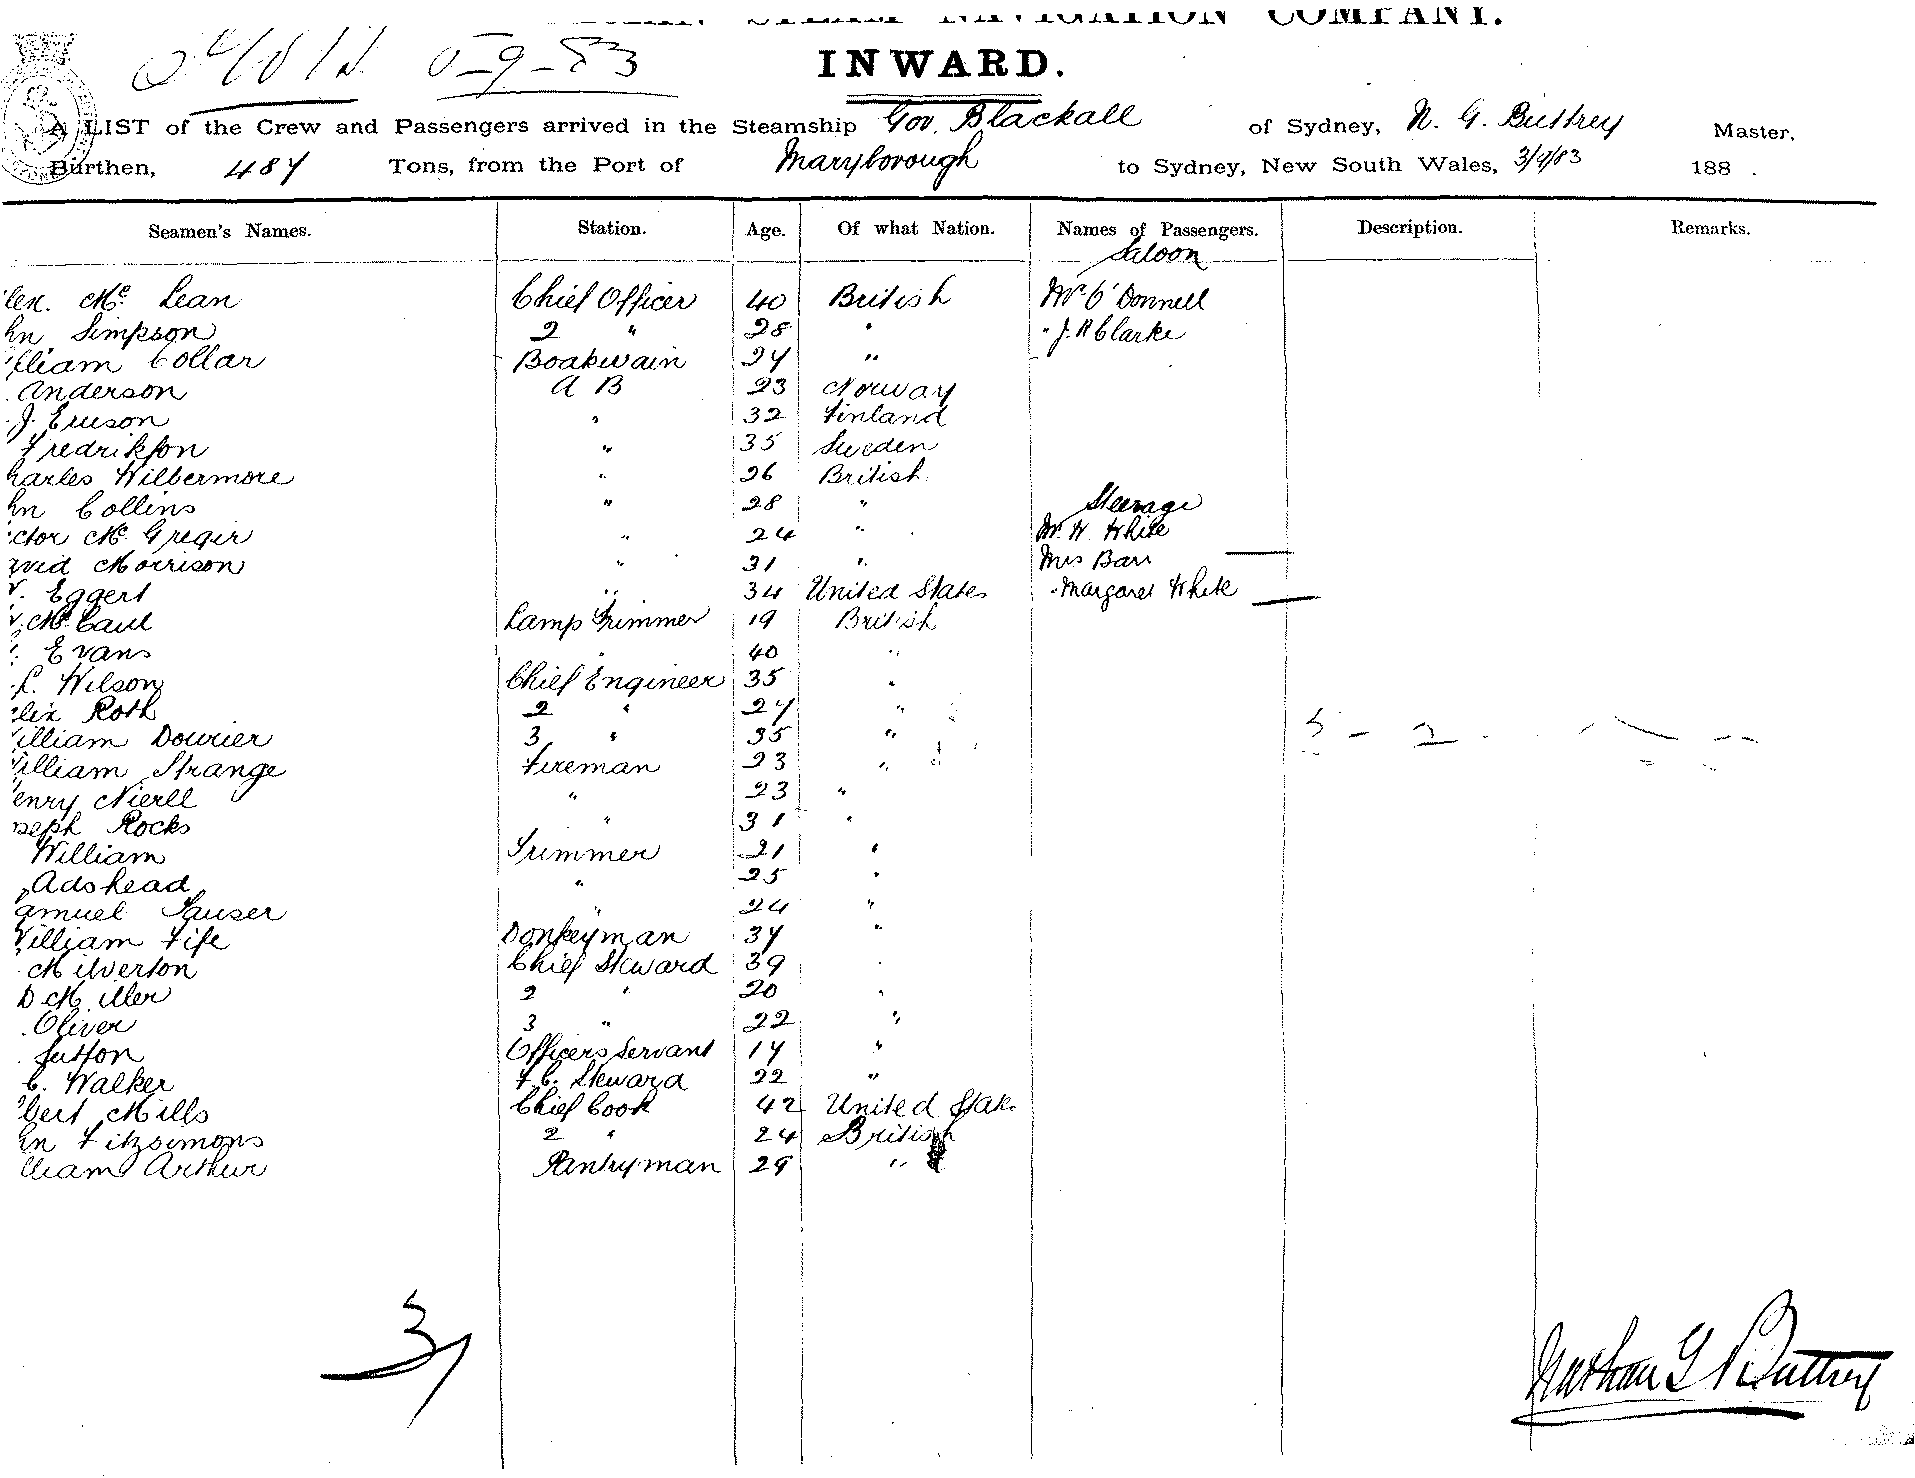 STEAM NAVIGATION COMPANY.
INWARD.
A LIST of the Crew and Passengers arrived in the Steamship Gov. Blackall of Sydney, N. G. Buttrey Master,
Burthen, 487 Tons, from the Port of Maryborough to Sydney, New South Wales, 3/9/83 188 .
Seamen's Names. Station. Age. Of what Nation. Names of Passengers. Description. Remarks.
Saloon
lex. Mc Lean Chief Officer 40 British Mr. O'Donnell
hn Simpson 2 " 28 " " J. R Clarke
illiam Collar Boatswain 24 "
Anderson A B 23 Norway
J. Ericson " 32 Finland
Fredrikson " 35 Sweden
harles Wilbermore " 26 British
hn Collins " 28 " Steerage
ictor Mc Gregir " 24 " Mr. W. White
avid Morrison " 31 " Mrs Barr
Eggert " 34 United States " Margaret White
Mc Caul Lamp Trimmer 19 British
Evans " 40 "
Wilson Chief Engineer 35 "
elix Roth 2 " 27 "
illiam Dourier 3 " 35 "
William Strange Fireman 23 "
enry Nierll " 23 "
oseph Rocks " 31 "
William Trimmer 21 "
Adshead " 25 "
amuel Tauser " 24 "
William Fife Donkeyman 34 "
Milverton Chief Steward 39 "
D Miller 2 " 20 "
Oliver 3 " 22 "
Sutton Officers Servant 14 "
C. Walker F. C. Steward 22 "
lbert Mills Chief Cook 42 United Stat.
hn Fitzsimons 2 " 24 British
lliam Arthur Pantryman 29 "
31
Nathan G Buttrey